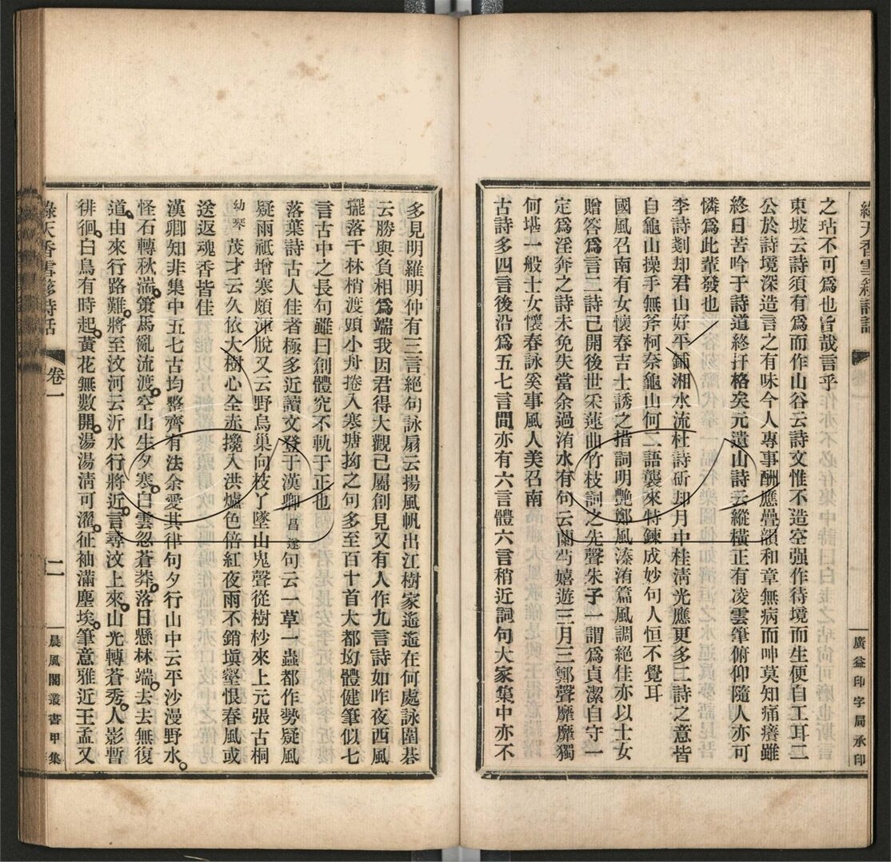 之玷不可爲也旨哉言乎
東坡云詩須有爲而作山谷云詩文惟不造空强作待境而生便自工耳二
公於詩境深造言之有味今人專事酬應疊韻和章無病而呻莫知痛癢雖
終日苦吟于詩道終扞格矣元遺山詩云縱橫正有凌雲筆俯仰隨人亦可
憐爲此輩發也
李詩剗却君山好平鋪湘水流杜詩斫却月中桂淸光應更多二詩之意皆
自龜山操手無斧柯奈龜山何二語襲來特鍊成妙句人恒不覺耳
國風召南有女懷春吉士誘之措詞明艷鄭風溱洧篇風調絕佳亦以士女
贈答爲言二詩已開後世采蓮曲竹枝詞之先聲朱子一謂爲貞潔自守一
定爲淫奔之詩未免失當余過洧水有句云蘭芍嬉遊三月三鄭聲靡靡獨
何堪一般士女懷春詠奚事風人美召南
古詩多四言後沿爲五七言間亦有六言體六言稍近詞句大家集中亦不
廣益印字局承印
多見明羅明仲有三言絕句詠扇云揚風帆出江樹家遙遙在何處詠圍碁
云勝與負相爲端我因君得大觀已屬創見又有人作九言詩如昨夜西風
擺落千林梢渡頭小舟捲入寒塘拗之句多至百十首大都拗體健筆似七
言古中之長句雖曰創體究不軌于正也
落葉詩古人佳者極多近讀文登于漢卿昌遂句云一草一蟲都作勢疑風
疑雨祗增寒頗渾脫又云野鳥巢向枝丫墜山鬼聲從樹杪來上元張古桐
幼琴茂才云久依大樹心全赤攙入洪爐色倍紅夜雨不銷塡壑恨春風或
送返魂香皆佳
漢卿知非集中五七古均整齊有法余愛其律句夕行山中云平沙漫野水
怪石轉秋湍策馬亂流渡空山生夕寒白雲忽蒼莽落日懸林端去去無復
道由來行路難將至汶河云沂水行將近言尋汶上來山光轉蒼秀人影暫
徘徊白鳥有時起黃花無數開湯湯淸可濯征袖滿塵埃筆意雅近王孟又
綠天香雪簃詩話
卷一
二
晨風閣叢書甲集